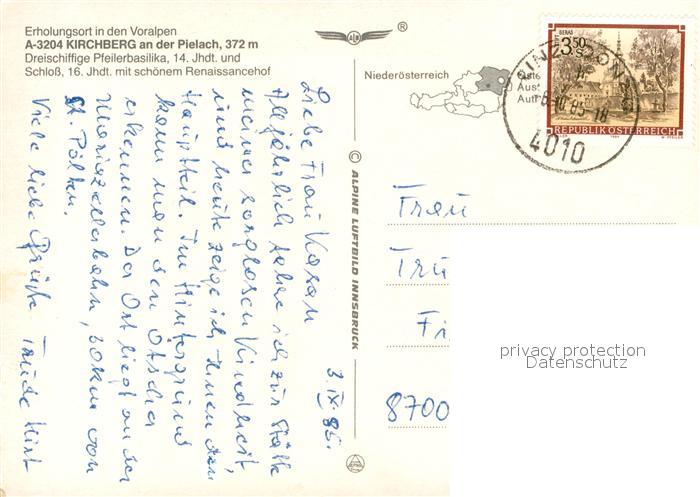 Erholungsort in den Voralpen
A-3204 KIRCHBERG an der Pielach, 372 m
Dreischiffige Pfeilerbasilika, 14. Jhdt. und
Schloß, 16. Jhdt. mit schönem Renaissancehof
®
Niederösterreich
© ALPINE LUFTBILD INNSBRUCK
GERAS
3.50
S
REPUBLIK ÖSTERREICH
LINZ DONAU
10.85-18
4010
3. IX. 85.
Liebe Frau
Alljährlich fahre ich zur Stätte
meiner sorglosen Kindheit,
und heute zeige ich Ihnen den
Hauptteil. Im Hintergrund
kann man den Ötscher
erkennen. Der Ort liegt an der
Mariazellerbahn, 20 km von
St. Pölten.
Viele liebe Grüße
Frau
Tru
Fi
8700
privacy protection
Datenschutz